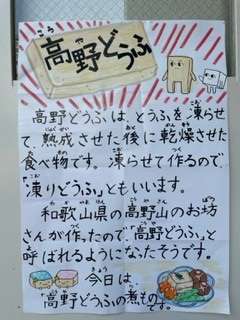 高野どうふ
高野どうふは、とうふを凍らせ
て、熟成させた後に乾燥させた
食べ物です。凍らせて作るので、
「凍りどうふ」ともいいます。
和歌山県の高野山のお坊
さんが作ったので、「高野どうふ」と
呼ばれるようになったそうです。
今日は
「高野どうふの煮もの」
です。